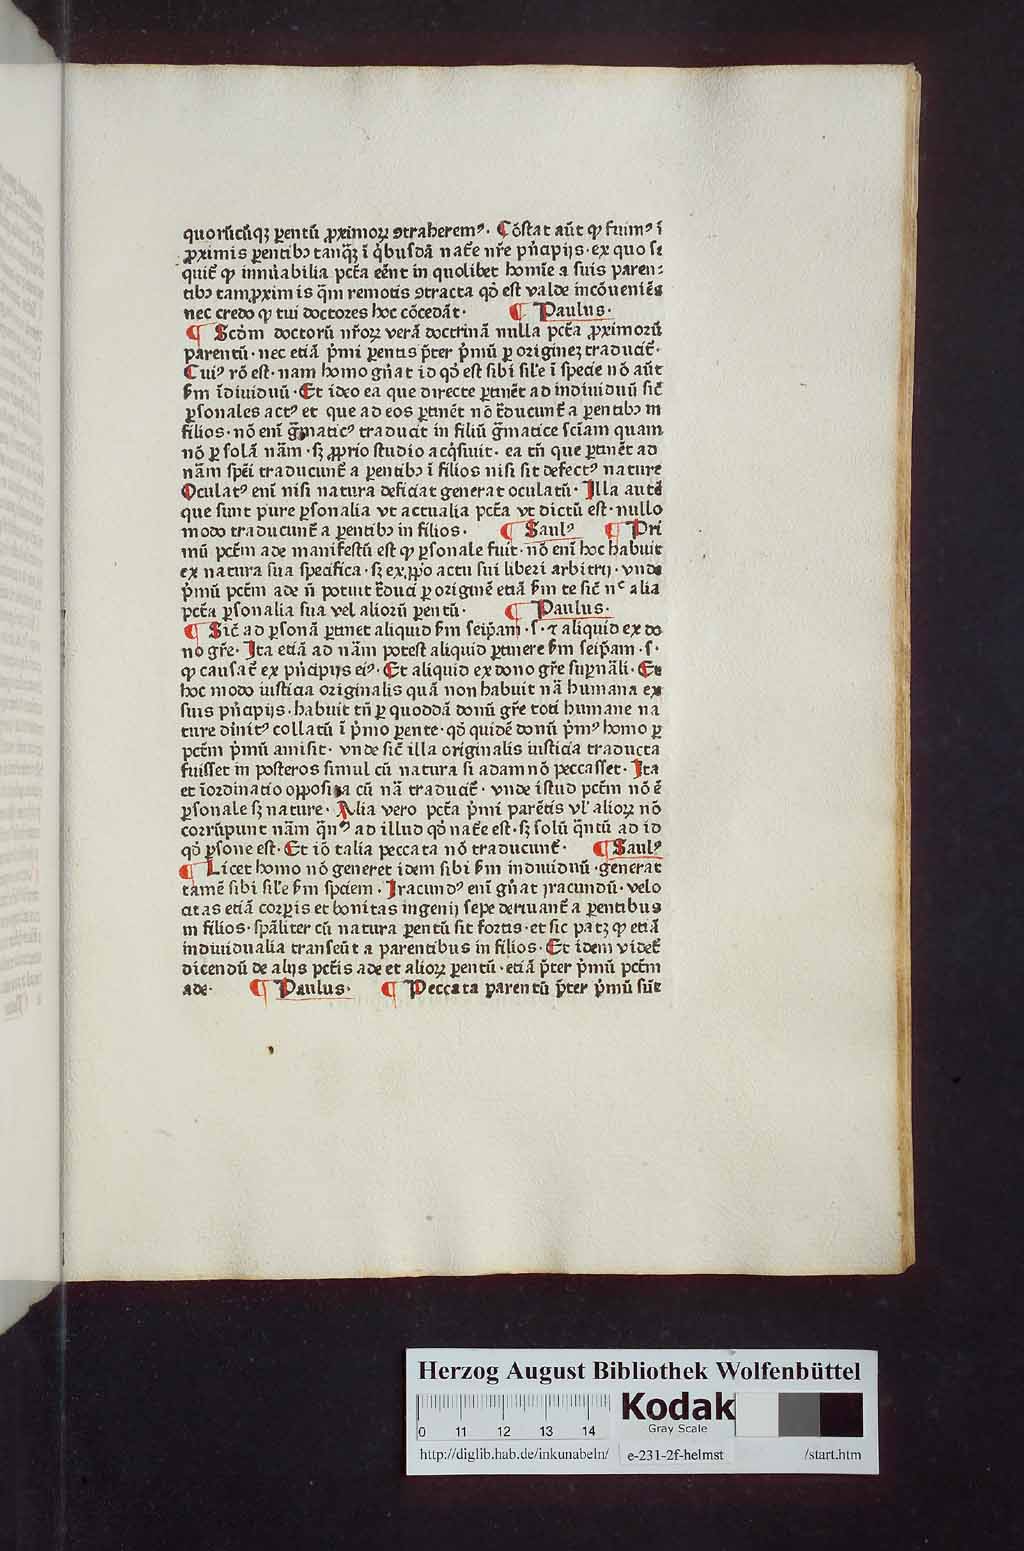 quorūcūqꝫ ꝑentū ꝓximoꝝ ꝯtraheremꝰ· Cōstat aūt ꝙ fuimꝰ ī
ꝓximis ꝑentibꝰ tanqꝫ̄ ī q̇busdā natᷓe nr̄e pn̄cipijs· ex quo se
quit᷑ ꝙ innūabilia pctā eēnt in quolibet homīe a suis paren⸗
tibꝰ tam ꝓximis qm̄ remotis ꝯtracta qd̄ est valde incōueniēs
nec credo ꝙ tui doctores hoc cōcedāt· ¶ Paulus·
¶ Scd̄m doctorū nr̄oꝝ verā doctrinā nulla pctā ꝓximorū
parentū· nec etiā pͥmi ꝑentis p̄ter pͥmū ꝑ origineꝫ traducit᷑·
Cuiꝰ rō est· nam homo gn̄at id qd̄ est sibi sil̄e ī specie nō aūt
ẜm īdiuiduū· Et ideo ea que directe ꝑtinēt ad indiuiduū sic̄
ꝑsonales actꝰ et que ad eos ꝑtinēt nō tᷓducunt᷑ a ꝑentibꝰ in
filios· nō eni gᷓmaticꝰ traducit in filiū gᷓmatice sciam quam
nō ꝑ solā nām· sꝫ ꝓprio studio acq̇siuit· ea tn̄ que ꝑtinēt ad
nām spēi traducunt᷑ a ꝑentibꝰ ī filios nisi sit defectꝰ nature
Oculatꝰ eni nisi natura deficiat generat oculatū· Illa autē
que sunt pure ꝑsonalia vt actualia pctā vt dictū est· nullo
modo traducunt᷑ a ꝑentibꝰ in filios· ¶ Saulꝰ ¶ Pri
mū pctm̄ ade manifestū est ꝙ ꝑsonale fuit· nō eni hoc habuit
ex natura sua specifica· sꝫ ex ꝓpͥo actu sui liberi arbitrij· vnde
pͥmū pctm̄ ade n̄ potuit tᷓduci ꝑ originē etiā ẜm te sic̄ nᶜ alia
pctā ꝑsonalia sua vel aliorū ꝑentū· ¶ Paulus·
¶ Sic̄ ad ꝑsonā ꝑtinet aliquid ẜm seip̄am· s· ⁊ aliquid ex do
no gr̄e· Ita etiā ad nām potest aliquid ꝑtinere ẜm seip̄am· s·
ꝙ causat᷑ ex pn̄cipijs eiꝰ· Et aliquid ex dono gr̄e suꝑnāli· Et
hoc modo iusticia originalis quā non habuit nā humana ex
suis pn̄cipijs· habuit tn̄ ꝑ quoddā donū gr̄e toti humane na
ture diītꝰ collatū ī pͥmo ꝑente· qd̄ quidē donū pͥmꝰ homo ꝑ
pctm̄ pͥmū amisit· vnde sic̄ illa originalis iusticia traducta
fuisset in posteros simul cū natura si adam nō peccasset· Ita
et īordinatio opposita cū nā traducit᷑· vnde istud pctm̄ nō ē
ꝑsonale sꝫ nature· Alia vero pctā pͥmi parētis vl̓ alioꝝ nō
corrūpunt nām qn̄ꝰ ad illud qd̄ natᷓe est· sꝫ solū qᷓntū ad id
qd̄ ꝑsone est· Et iō talia peccata nō traducunt᷑· ¶ Saulꝰ
¶ Licet homo nō generet idem sibi ẜm indiuiduū· generat
tamē sibi sil̄e ẜm spciem· Iracundꝰ eni gn̄at iracundū· velo
citas etiā corꝑis et bonitas ingenij sepe deriuant᷑ a ꝑentibus
in filios· spāliter cū natura ꝑentū sit fortis· et sic patꝫ ꝙ etiā
indiuidualia transeūt a parentibus in filios· Et idem videt᷑
dicendū de alijs pctīs ade et alioꝝ ꝑentū· etiā p̄ter pͥmū pctm̄
ade· ¶ Paulus· ¶ Peccata ꝑarentū p̄ter pͥmū sūt
Herzog August Bibliothek Wolfenbüttel
0 11 12 13 14
Kodak
Gray Scale
http://diglib.hab.de/inkunabeln/ e-231-2f-helmst /start.htm